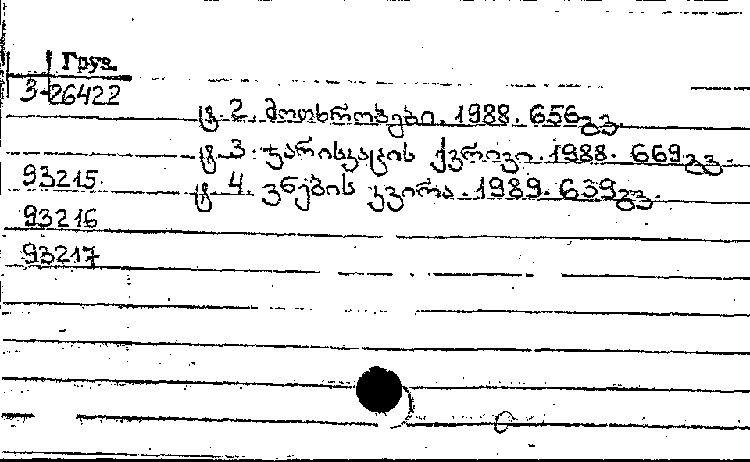 Груз.
3-26422
ტ. 2. მოთხრობები. 1988. 656გვ.
ტ. 3. ჯარისკაცის ქვრივი. 1988. 669გვ.
93215.
ტ. 4. ვნების კვირა. 1989. 639გვ.
93216
93217